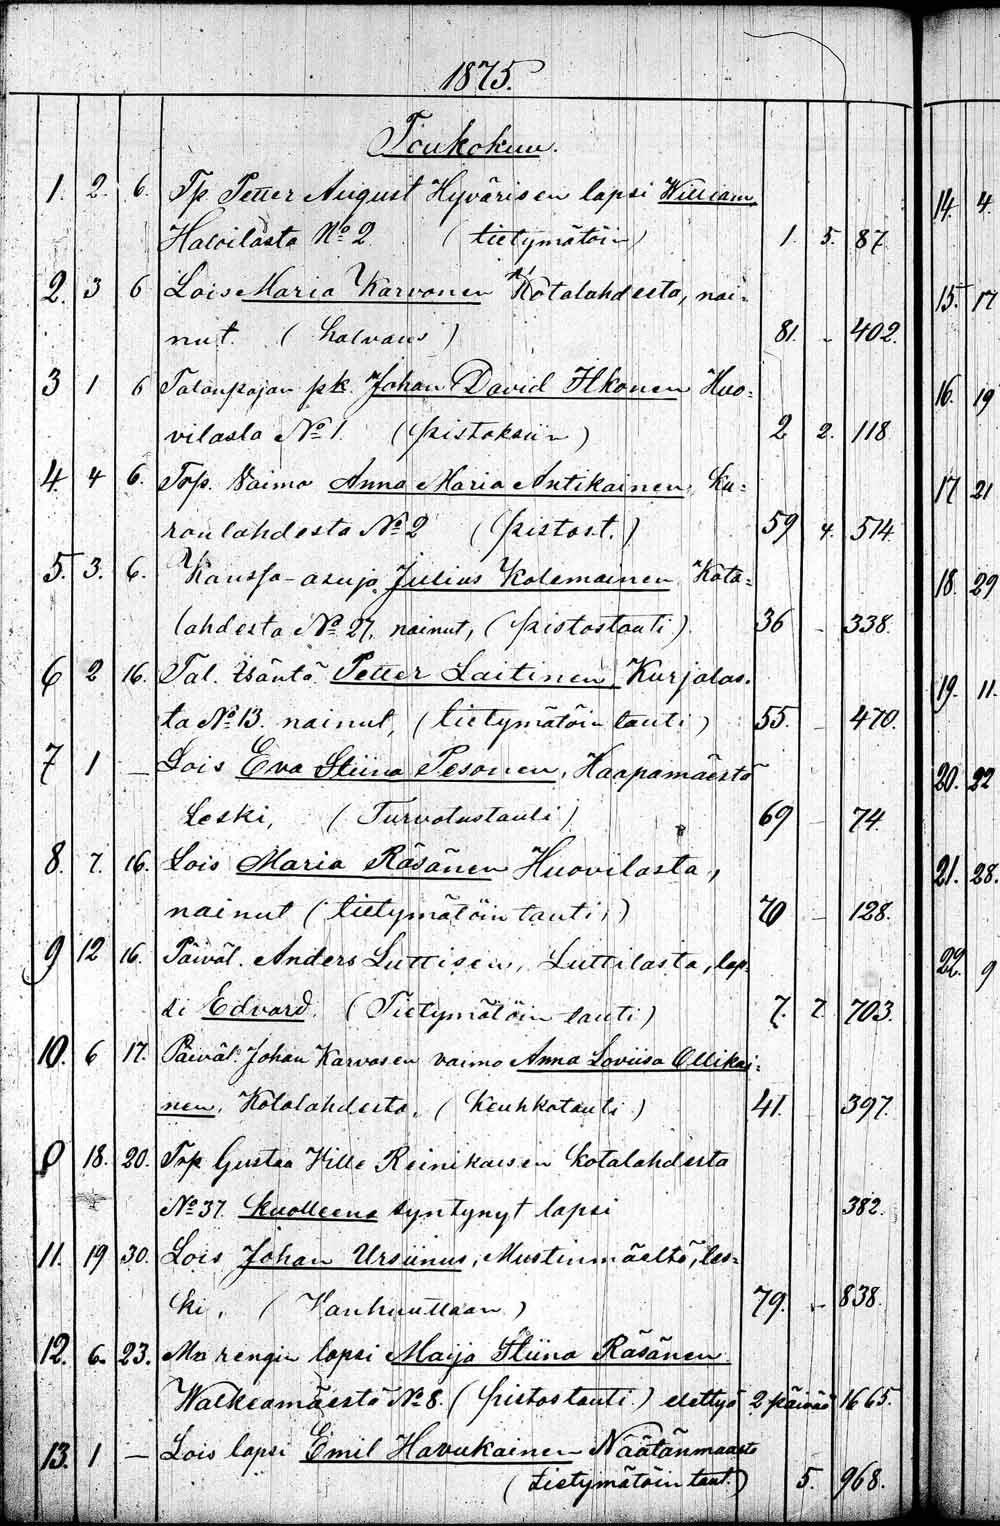 1875.
Toukokuu.
1. 2. 6. Tp Petter August Hyvärisen lapsi William
Halvilasta No 2 (tietymätöin) 1. 5. 87.
2. 3 6 Lois Maria Karvonen Kotalahdesta, nai=
nut. (halvaus) 81. - 402.
3 1 6 Talonpojan pk. Johan David Ilkonen Huo=
vilasta No 1. (pistoksiin) 2 2. 118
4. 4 6. Torp. Vaimo Anna Maria Antikainen, Ku=
roulahdesta No 2 (pistost.) 59 4. 514.
5. 3. 6. Kanssa-asuja Julius Kolemainen Kota=
lahdesta No 27, nainut, (pistostauti) 36 - 338.
6 2 16. Tal. Isäntä Petter Laitinen, Kurjalas=
ta No 13. nainut, (tietymätöin tauti) 55. - 470.
7 1 — Lois Eva Stiina Pesonen, Haapamäestä
Leski, (Turvotustauti) 69 - 74.
8. 7. 16. Lois Maria Räsänen Huovilasta,
nainut (tietymätöin tauti,) 70 - 128.
9 12 16. Päiväl. Anders Luttisen, Luttilasta, lap=
si Edvard. (Tietymätöin tauti) 7. 7 703.
10. 6 17. Päiväl. Johan Karvosen vaimo Anna Loviisa Ollikai=
nen, Kotalahdesta. (Keuhkotauti) 41. 397.
0 18. 20. Torp Gustaa Wille Reinikaisen Kotalahdesta
No 37. kuolleena syntynyt lapsi 382.
11. 19 30. Lois Johan Ursinus, Mustinmäeltä, les=
ki, (Vanhuuttaan) 79. - 838.
12. 6. 23. Mn rengin lapsi Maija Stiina Räsänen
Walkeamäestä No 8. (pistostauti.) elettyä 2 päivää 1665.
13. 1 — Lois lapsi Emil Havukainen Näätänmaasta
(tietymätöin taut.) 5. 968.
14. 4.
15. 17
16. 19
17 21
18. 29
19. 11.
20. 22
21. 28.
22. 9